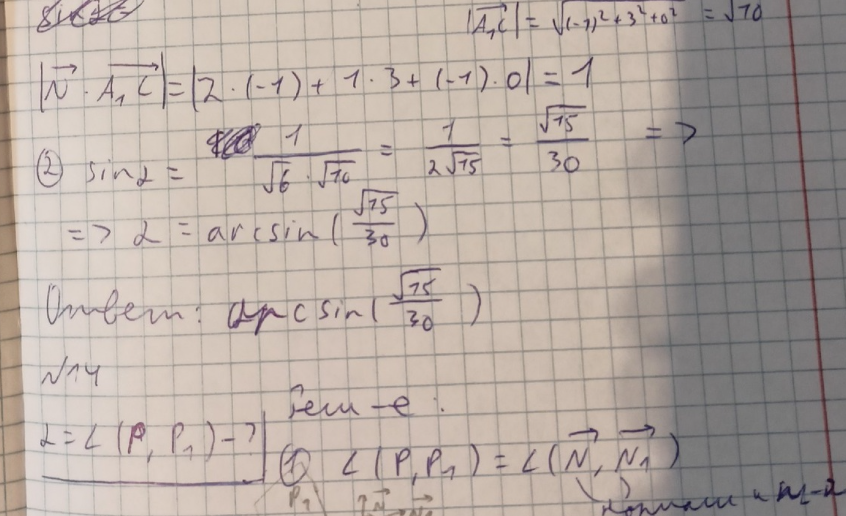 |A₁C⃗| = √((-1)² + 3² + 0²) = √10
|N⃗ · A₁C⃗| = |2 · (-1) + 1 · 3 + (-1) · 0| = 1
② sin α = 1/(√6 · √10) = 1/(2√15) = √15/30 =>
=> α = arcsin(√15/30)
Ответ: arcsin(√15/30)
N14
α = ∠(P, P₁) - ?
Реш-е:
① ∠(P, P₁) = ∠(N⃗, N₁⃗)
P₁ N⃗ N₁⃗
нормали к пл-